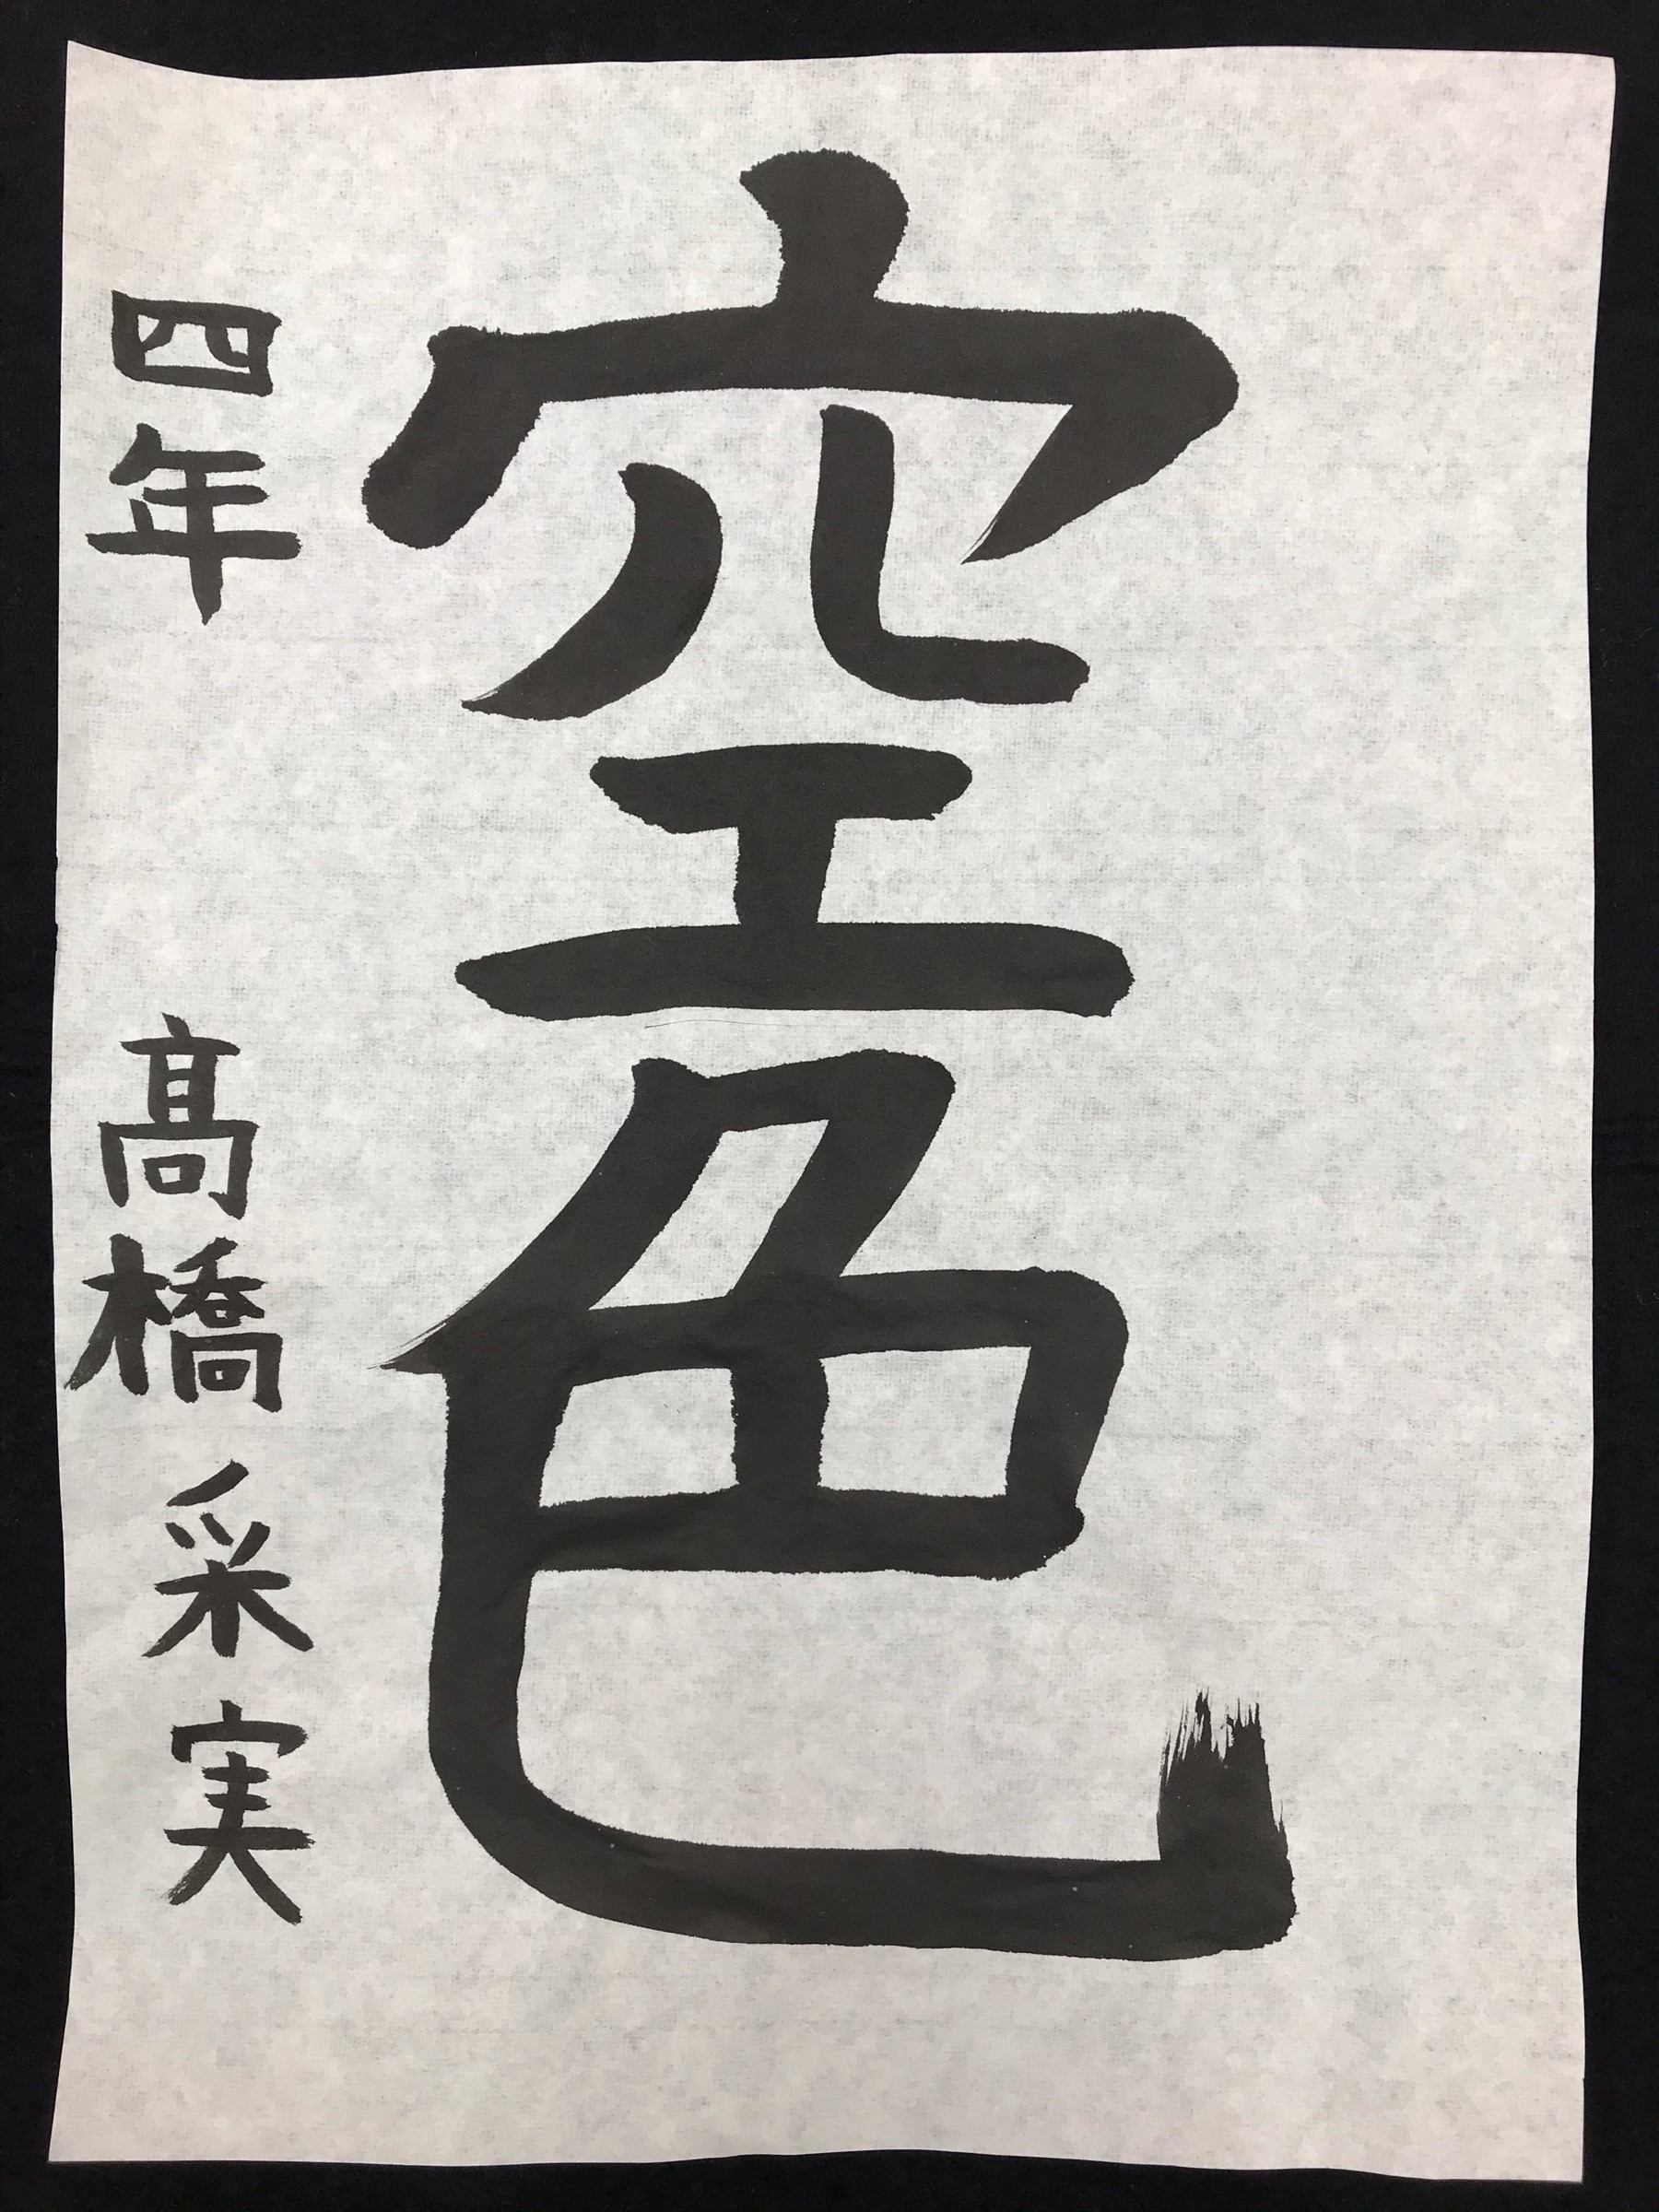 空色
四年 髙橋采実